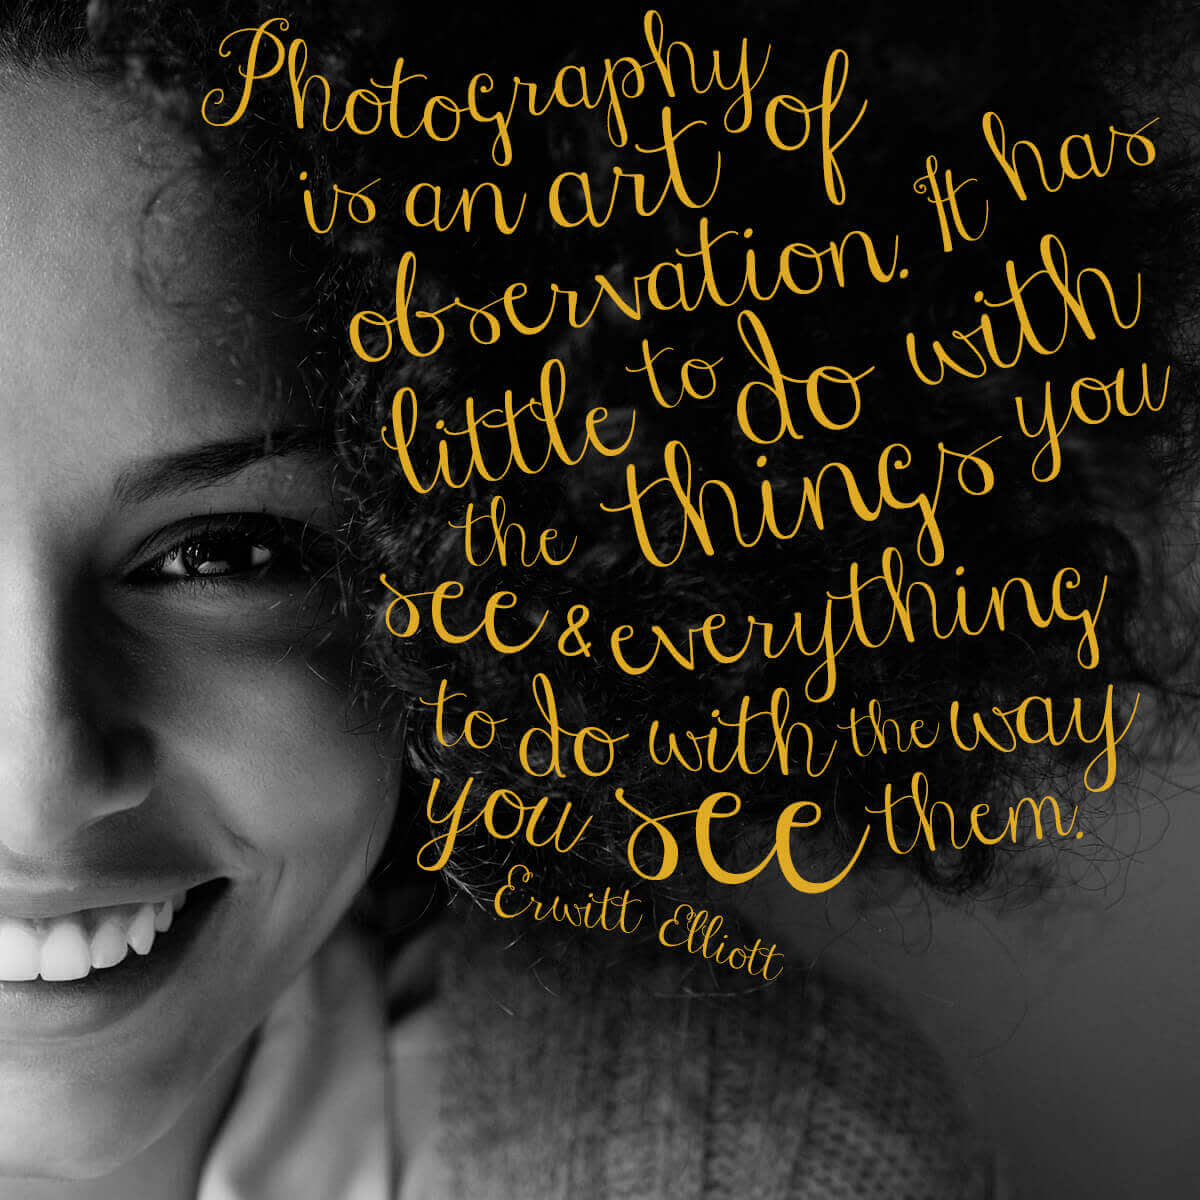 Photography of
is an art
observation. It has
little to do with
the things you
see & everything
to do with the way
you see them.
Erwitt Elliott